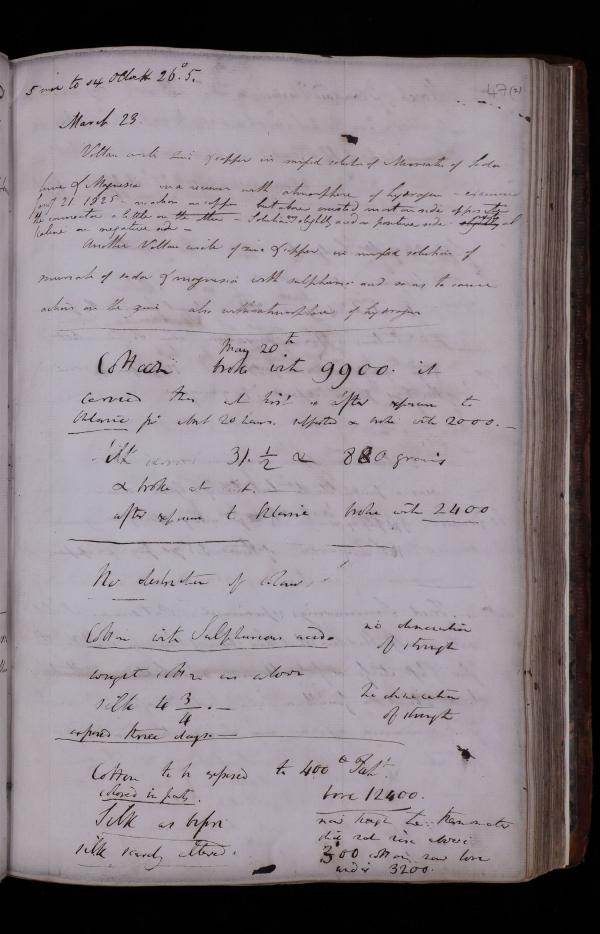 5 min to 14 Oclock 26°.5.
47 (2)
March 23
Voltaic circle zinc & copper in mixed solution of Muriate of Soda
& of Magnesia in a receiver with atmosphere of hydrogen - examined
21 1825 - no action on copper but zinc oxided most on side opposite
the connection a little on the other - Solution slightly acid on positive side slightly al
kaline on negative side -
Another Voltaic circle of zinc & copper in mixed solution of
muriate of soda & magnesia with sulphuric acid so as to cause
action on the zinc also with atmosphere of hydrogen
May 20th
Cotton broke with 9900. it
carried this at first & after exposure to
Chlorine for about 20 hours. & broke with 2000. -
Silk 31 1/2 & 880 grains
& broke at it.
after exposure to Chlorine broke with 2400
No destruction of colour
Cotton with Sulphureous acid. no diminution
of strength
weight cotton as above
silk 4 3/4 . - no diminution
of strength
exposed three days -
Cotton to be exposed to 400° Faht.
bore 12400.
Silk as before now though the thermometer
did not rise above
silk scarcely altered. 300 cotton now bore
under 3200.